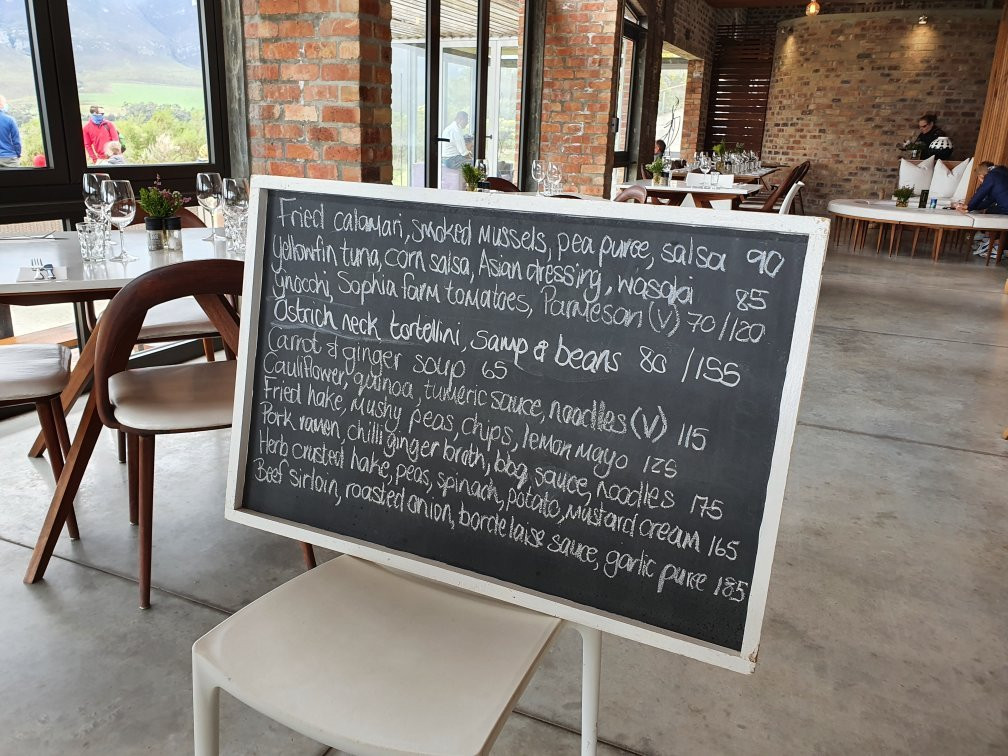 Fried calamari, smoked mussels, pea puree, salsa 90
Yellowfin tuna, corn salsa, Asian dressing, wasabi 85
Gnocchi, Sophia farm tomatoes, Parmesan (v) 70/120
Ostrich neck tortellini, samp & beans 80/155
Carrot & ginger soup 65
Cauliflower, quinoa, tumeric sauce, noodles (v) 115
Fried hake, mushy peas, chips, lemon mayo 125
Pork ramen, chilli ginger broth, bbq sauce, noodles 175
Herb crusted hake, peas, spinach, potato, mustard cream 165
Beef sirloin, roasted onion, bordelaise sauce, garlic puree 185